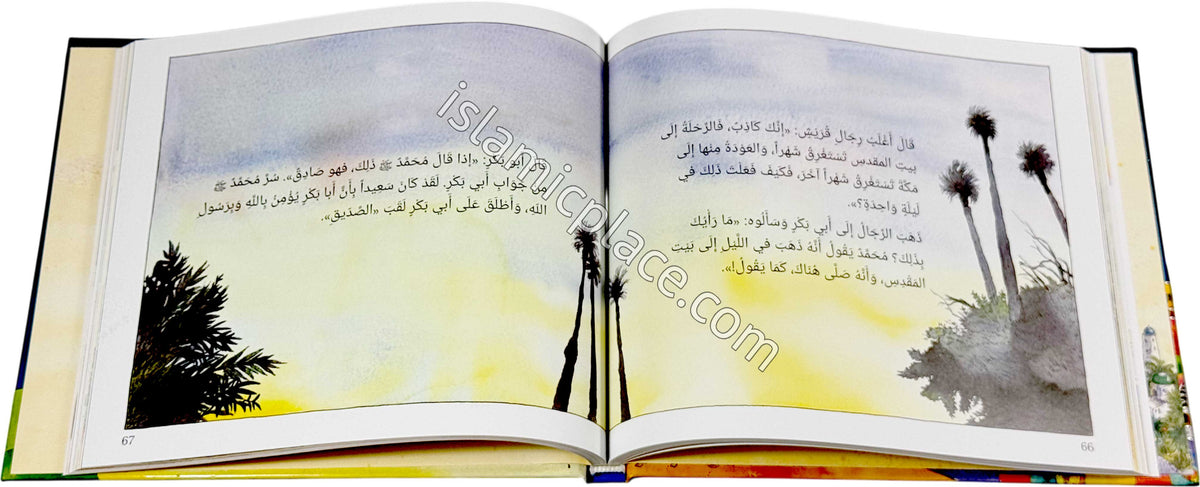 قَالَ أَغْلَبُ رِجَالِ قُرَيْشٍ: «إِنَّكَ كَاذِبٌ، فَالرِّحْلَةُ إِلَى
بيتِ المَقدسِ تَسْتَغْرِقُ شَهْراً، وَالعَوْدَةُ مِنْها إِلَى
مَكَّةَ تَسْتَغْرِقُ شَهْراً آخَرَ، فَكَيْفَ فَعَلْتَ ذَلِكَ في
لَيْلَةٍ وَاحِدَةٍ؟».
ذَهَبَ الرِّجَالُ إِلَى أَبي بَكْرٍ وَسَأَلُوه: «مَا رَأْيُكَ
بِذَلِكَ؟ مُحَمَّدٌ يَقُولُ أَنَّهُ ذَهَبَ في اللَّيلِ إِلَى بَيْتِ
المَقْدِسِ، وَأَنَّهُ صَلَّى هُنَاكَ، كَمَا يَقُولُ!».
66
قَالَ أَبو بَكْرٍ: «إِذَا قَالَ مُحَمَّدٌ ﷺ ذَلِكَ، فهو صَادِقٌ». سُرَّ مُحَمَّدٌ ﷺ
مِنْ جَوَابِ أَبي بَكْرٍ. لَقَدْ كَانَ سَعِيداً بِأَنَّ أَبا بَكْرٍ يُؤْمِنُ بِاللَّهِ وَبِرَسُولِ
اللَّهِ، وَأَطْلَقَ عَلَى أَبي بَكْرٍ لَقَبَ «الصِّدِّيقِ».
67
islamicplace.com